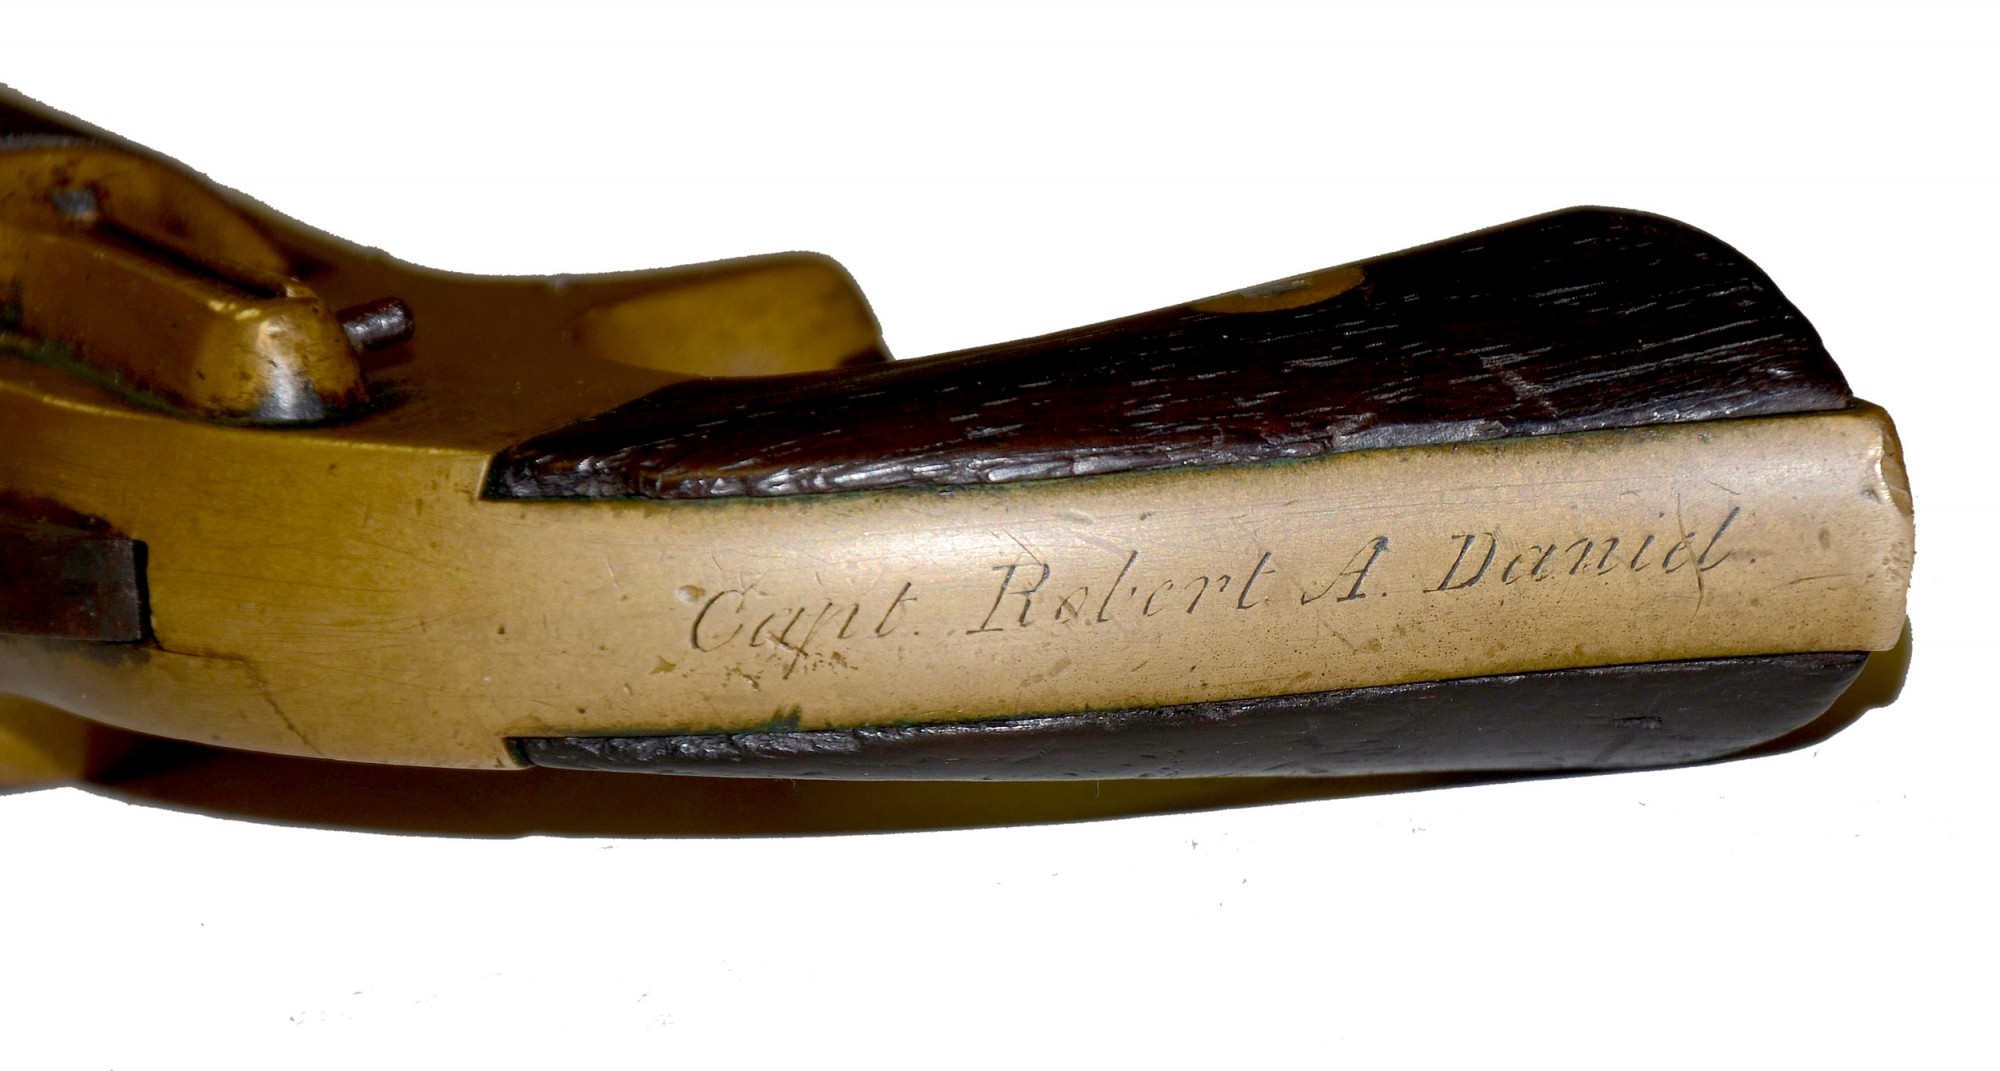 Capt. Robert A. Daniel.